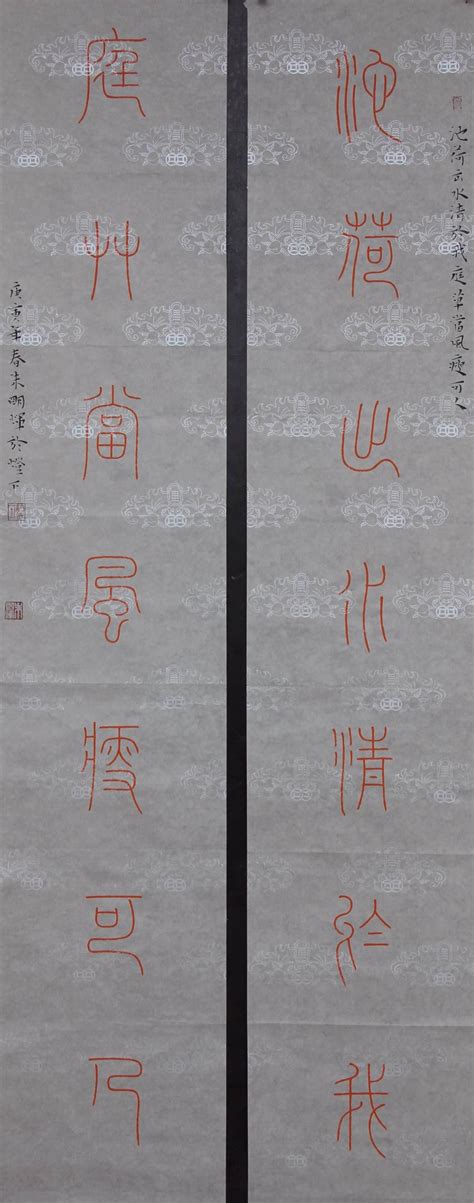 池荷出水清於我庭草當風瘦可人
池荷出水清於我
庭艸當風瘦可人
庚寅年春朱朙輝於燈下